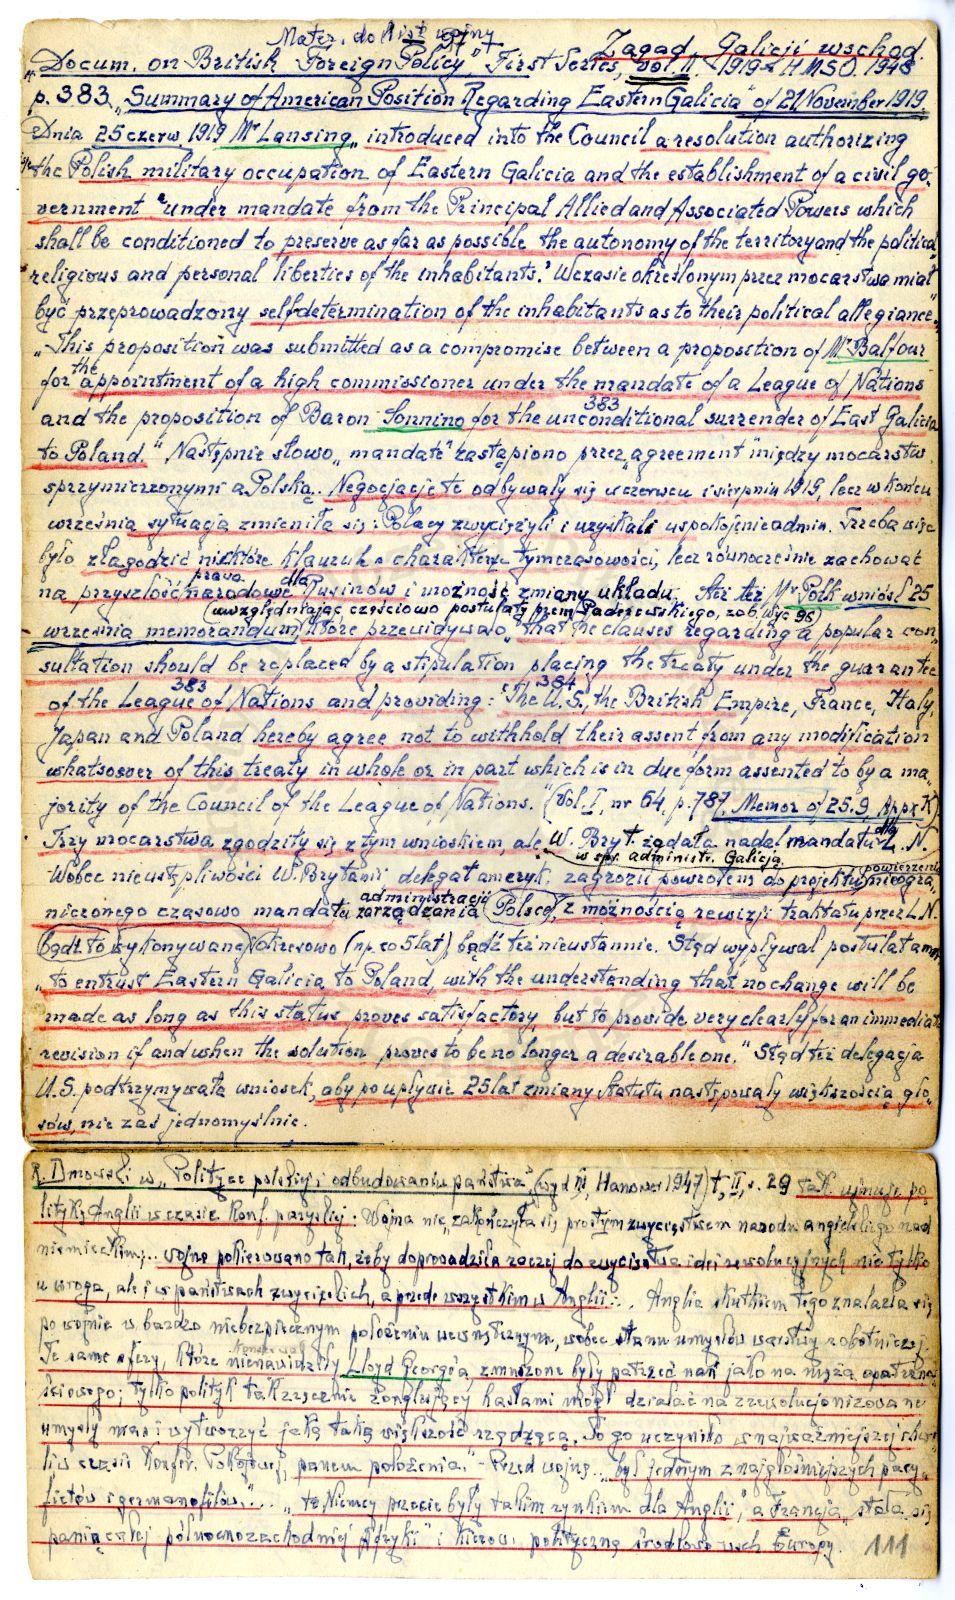 Mater. do hist. wojny
Zagad. Galicji wschod.
"Docum. on British Foreign Policy", First Series, vol. II 1919 HMSO. 1948
p. 383 "Summary of American Position Regarding Eastern Galicia" of 21 November 1919.
Dnia 25 czerw. 1919 Mr Lansing "introduced into the Council a resolution authorizing
the Polish military occupation of Eastern Galicia and the establishment of a civil go-
vernment "under mandate from the Principal Allied and Associated Powers which
shall be conditioned to preserve as far as possible the autonomy of the territory and the political,
religious and personal liberties of the inhabitants.' W czasie określonym przez mocarstwa miał
być przeprowadzony selfdetermination of the inhabitants as to their political allegiance."
"This proposition was submitted as a compromise between a proposition of Mr Balfour
for the appointment of a high commissioner under the mandate of a League of Nations
383
and the proposition of Baron Sonnino for the unconditional surrender of East Galicia
to Poland." Następnie słowo "mandate" zastąpiono przez "agreement" między mocarstw.
sprzymierzonymi a Polską. Negocjacje te odbywały się w czerwcu i sierpniu 1919, lecz w końcu
września sytuacja zmieniła się: Polacy zwyciężyli i uzyskali uspokojenie admin. Trzeba więc
było złagodzić niektóre klauzule o charakterze tymczasowości, lecz równocześnie zachować
na przyszłość prawa narodowe dla Rusinów i możność zmiany układu. Też też Mr Polk wniósł 25
(uwzględniając częściowo postulaty prem. Paderewskiego, zob. wyc 98)
września memorandum, które przewidywało "that the clauses regarding a popular con-
sultation should be replaced by a stipulation placing the treaty under the guarantee
383 384
of the League of Nations and providing: 'The U.S., the British Empire, France, Italy,
Japan and Poland hereby agree not to withhold their assent from any modification
whatsosver of this treaty in whole or in part which is in due form assented to by a ma-
jority of the Council of the League of Nations." (Vol. I, nr 64, p. 787, Memor of 25.9, Appx K)
Trzy mocarstwa zgodziły się z tym wnioskiem, ale W. Bryt. żądała nadal mandatu dla L.N.
w spr. administr. Galicją.
Wobec nieustępliwości W. Brytanii delegat ameryk. zagroził powrotem do projektu powierzenia nieogra-
niczonego czasowo mandatu administracji zarządzania Polsce, z możnością rewizji traktatu przez L.N.
bądź to wykonywaną okresowo (np. co 5 lat), bądź też nieustannie. Stąd wypływał postulat amer.
"to entrust Eastern Galicia to Poland, with the understanding that no change will be
made as long as this status proves satisfactory, but to provide very clearly for an immediate
revision if and when the solution proves to be no longer a desirable one." Stąd też delegacja
U.S. podtrzymywała wniosek, aby po upływie 25 lat zmiany statutu następowały większością gło-
sów, nie zaś jednomyślnie.
R. Dmowski w "Polityce polskiej i odbudowaniu państwa", (wyd III, Hanower 1947) t. II, s. 29 tak ujmuje po-
litykę Anglii w czasie konf. paryskiej: Wojna nie zakończyła się prostym zwycięstwem narodu angielskiego nad
niemieckim;.. wojnę pokierowano tak, żeby doprowadziła raczej do zwycięstwa idei rewolucyjnych nie tylko
u wroga, ale i w państwach zwycięskich, a przede wszystkim w Anglii... Anglia skutkiem tego znalazła się
po wojnie w bardzo niebezpiecznym położeniu wewnętrznym, wobec stanu umysłów warstwy robotniczej.
Te same sfery, które nienawidziły Lloyd George'a, zmuszone były patrzeć nań jako na męża opatrzno-
ściowego; tylko polityk tak zręcznie żonglujący hasłami mógł działać na zrewolucjonizowane
umysły mas i wytworzyć jaką taką większość rządzącą. To go uczyniło w najważniejszej chwi-
li w czasie Konfer. Pokojowej, panem położenia." - Przed wojną.. "był jednym z najgłośniejszych pacy-
fistów i germanofilów,"... "te Niemcy przecie były takim rynkiem dla Anglii", a Francja "stała się
panią całej północnozachodniej Afryki" i kierow. polityczną środkowo wsch. Europy.
111